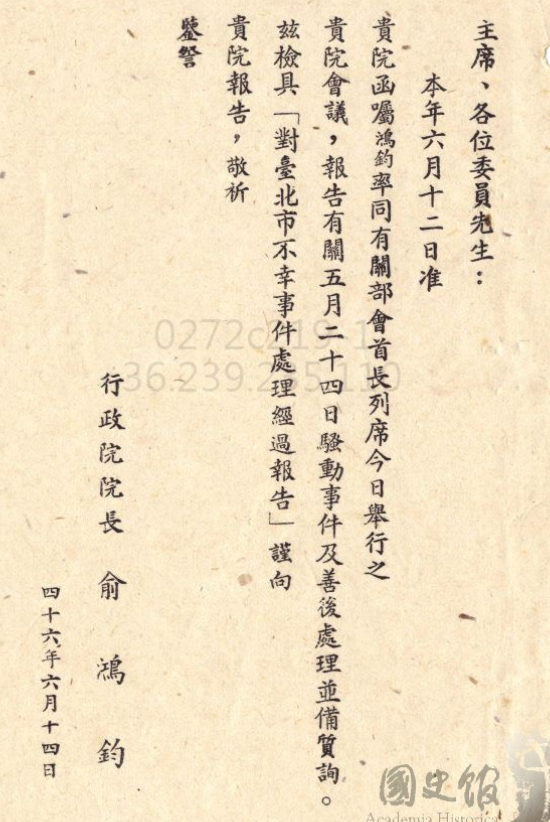 主席、各位委員先生：
本年六月十二日准
貴院函囑鴻鈞率同有關部會首長列席今日舉行之
貴院會議，報告有關五月二十四日騷動事件及善後處理並備質詢。
茲檢具「對臺北市不幸事件處理經過報告」謹向
貴院報告，敬祈
鑒詧
行政院院長 俞鴻鈞
四十六年六月十四日
0272c219-1
36.239.235.110
國史館
Academia Historica